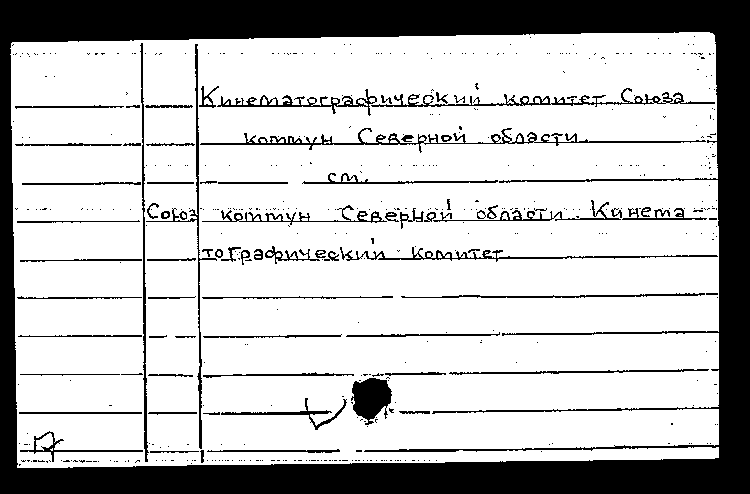 Кинематографический комитет Союза
коммун Северной области
см.
Союз коммун Северной области. Кинема-
тографический комитет.